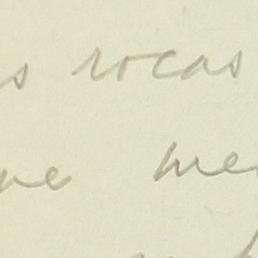 s rocas
ue me